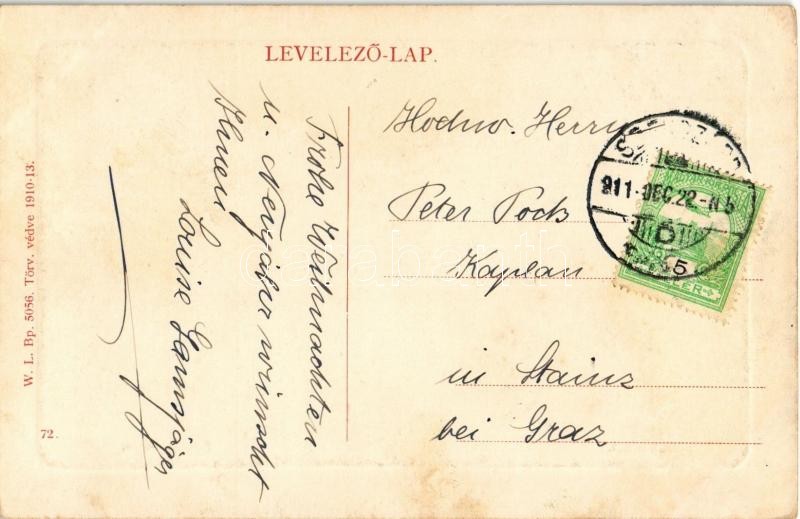 LEVELEZŐ-LAP.
Frohe Weihnachten
u. Neujahr wünscht
Ihnen
Louise Gamsjäger
Hochw. Herrn
Peter Pock
Kaplan
in Stainz
bei Graz
911-DEC.22-N6
5
W. L. Bp. 5056. Törv. védve 1910-13.
72.